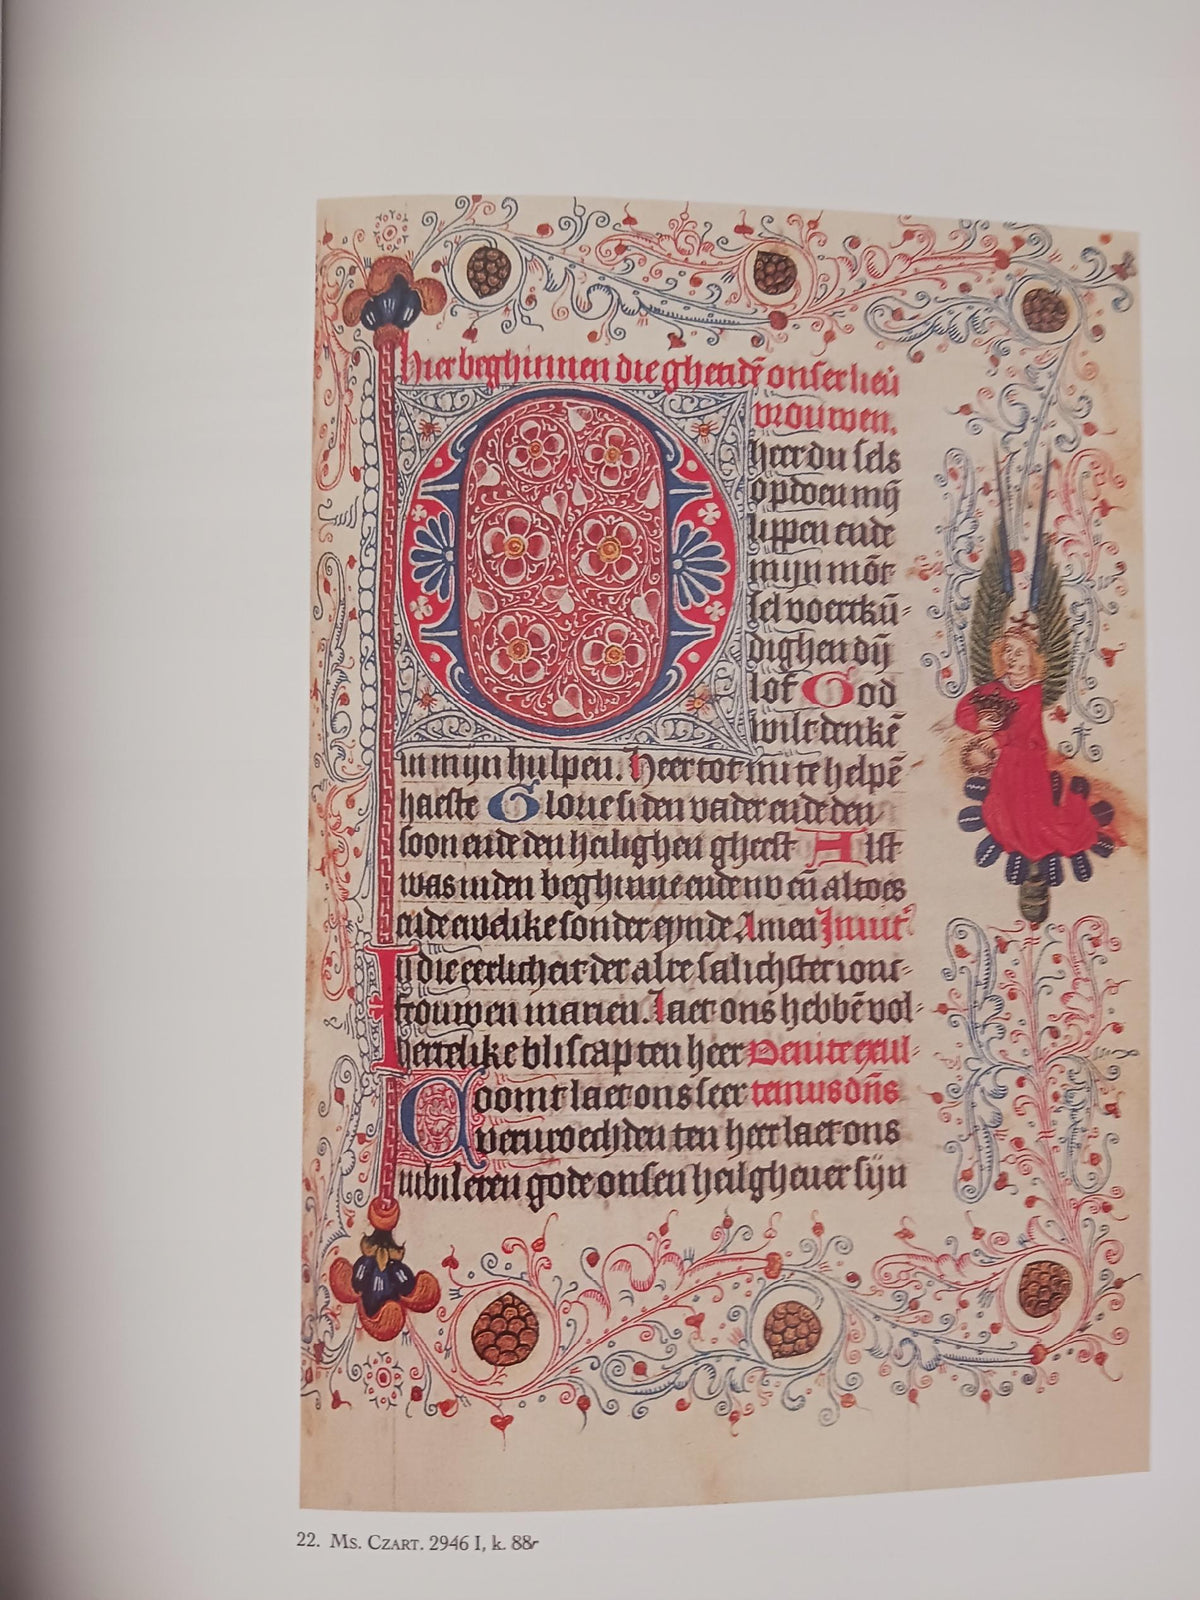 Hier beghinnen die ghetidē onser lieū
vrouwen.
Heer du sels
opdoen mij
lippen ende
mijn mōt
sel voertkū-
dighen dij
lof God
wilt denkē
in mijn hulpen. Heer tot mi te helpē
haeste Glorie si den vader ende den
soon ende den heilighen gheest Alst
was in den beghinne ende nv eñ altoes
ende ewelike sonder eynde Amen Inuit
In die eerlicheit der alre salichster ionc-
frouwen marien. Laet ons hebbē vol-
hertelike bliscap ten heer Venite exul-
Coomt laet ons seer temus dñs
vervroechden ten heer laet ons
iubileren gode onsen heilgheuer sijn
22. Ms. Czart. 2946 I, k. 88r